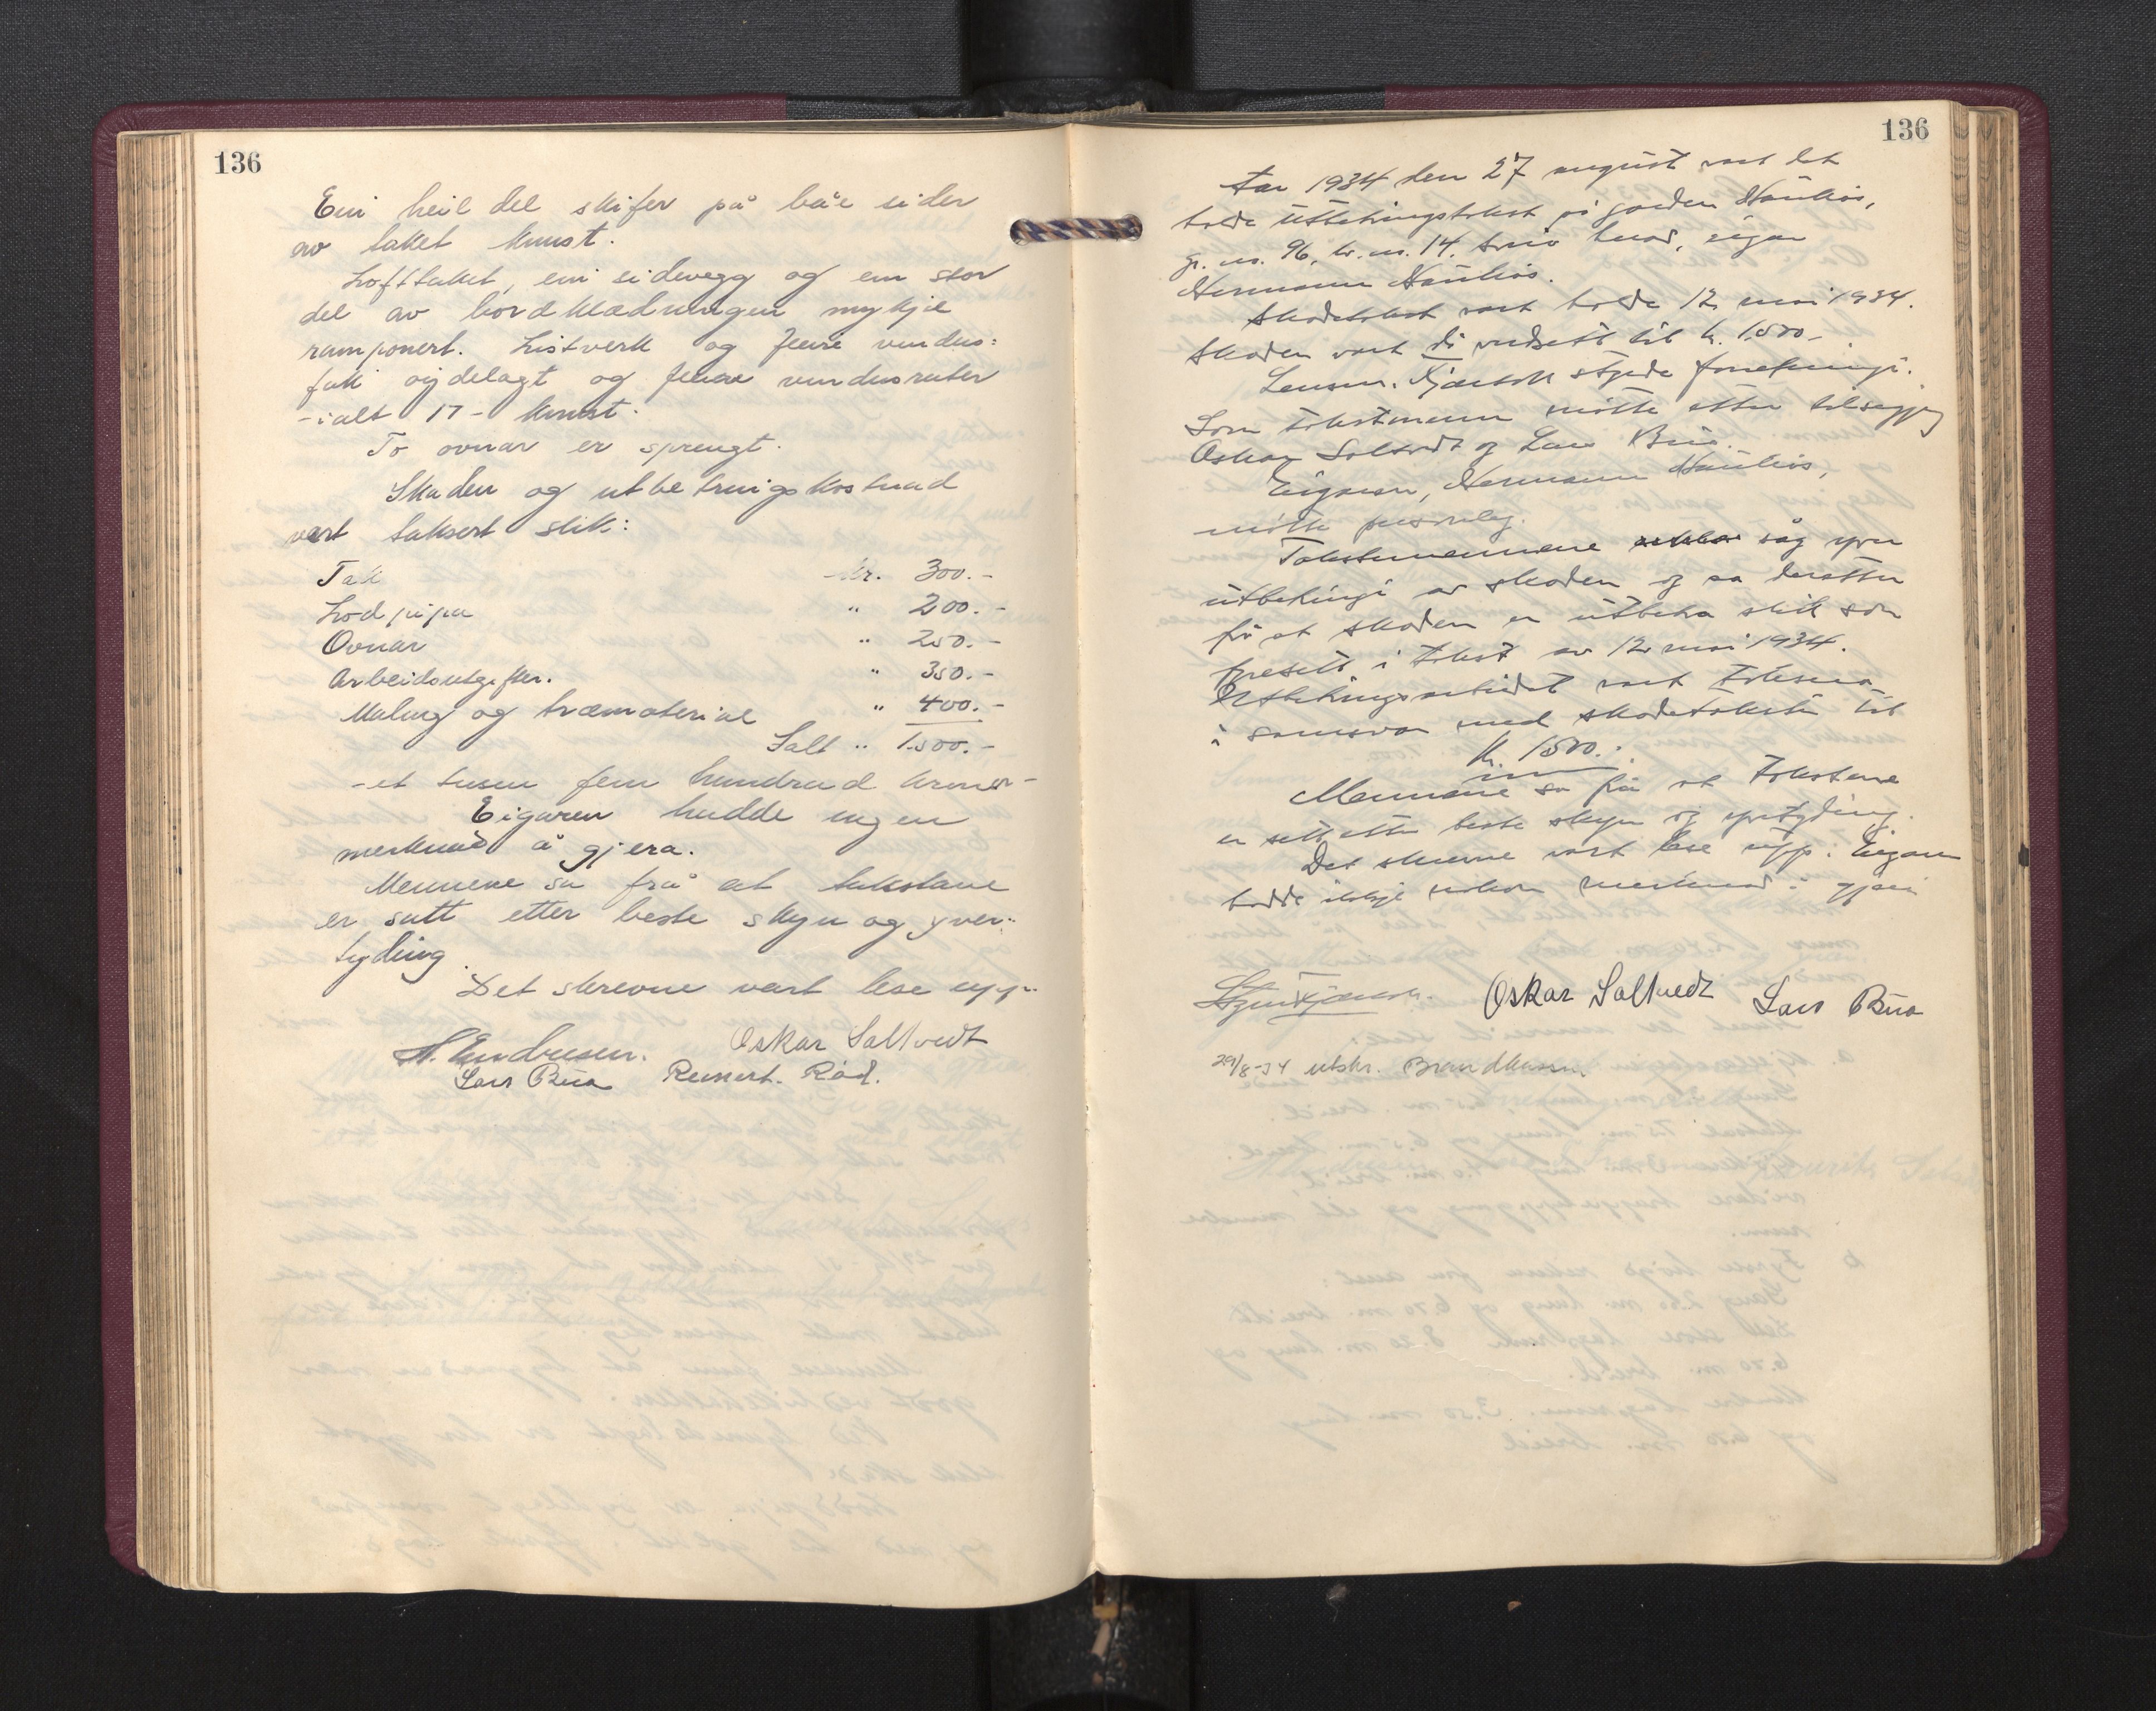 136
Ein heil del skifer på bå'e sider
av taket knust.
Lofttaket, ein sidevegg og ein stor
del av bordklædningen mykje
ramponert. Listverk og fleire vindus:
fak öydelagt og fleire vindusruter
- ialt 17 - knust.
To ovnar er sprengt.
Skaden og utbetringskostnad
vart taksert slik:
Tak kr. 300.-
Lodpipa " 200.-
Ovnar " 250.-
Arbeidsutgifter. " 350.-
Maling og træmaterial " 400.-
Ialt " 1.500.-
- et tusen fem hundrad kroner -
Eigaren hadde ingen
merknad å gjera.
Mennene sa frå at takstane
er satt etter beste skyn og yver:
tyding.
Det skrevne vart lese upp.
A. Endresen. Oskar Saltvedt
Lars Bua Reinert. Röd.
136
Aar 1934 den 27 august vart det
halde utbetringstakst på garden Haukås,
gr. nr. 96, br. nr. 14, herad, eigar
Hermann Haukås.
Skadetakst vart halde 12 mai 1934.
Skaden vart då verdsett til kr. 1500.-
Lensm. Kjærvik styrde forretningi.
Som takstmenn mötte etter tilsegjing
Oskar Saltvedt og Lars Bua.
Eigaren, Hermann Haukås,
mötte personleg.
Takstmennene såg yver
utbetringi av skaden og sa deretter
frå at skaden er utbetra slik som
fyresett i takst av 12 mai 1934.
Utbetringsarbeidet vart taksera
i samsvar med skadetaksten til
kr. 1500.-
Mennene sa frå at takstene
er sett etter beste skyn og yvertyding.
Det skrevne vart lese upp. Eigaren
hadde ikkje nokon merknad å gjera
Oskar Saltvedt Lars Bua
29/8-34 utskr. Brandkassen.